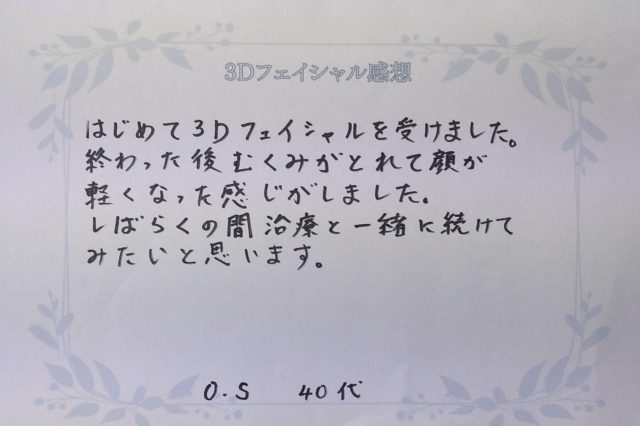 3Dフェイシャル感想
はじめて3Dフェイシャルを受けました。
終わった後むくみがとれて顔が
軽くなった感じがしました。
しばらくの間治療と一緒に続けて
みたいと思います。
O.S 40代